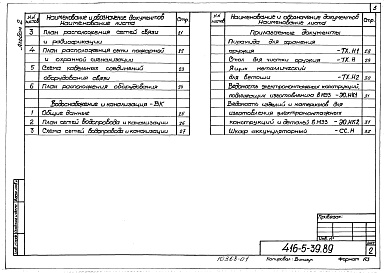 Альбом 2
3
№ листа
Наименование и обозначение документов
Наименование листа
Стр.
3 План расположения сетей связи и радиофикации 21
4 План расположения сети пожарной и охранной сигнализации
5 Схема кабельных соединений оборудования связи
6 План расположения оборудования
Водоснабжение и канализация - ВК
1 Общие данные
2 План сетей водопровода и канализации 26
3 Схема сетей водопровода и канализации 27
№ листа
Наименование и обозначение документов
Наименование листа
Стр.
Прилагаемые документы
Пирамида для хранения
оружия -ТХ.Н1
Стол для чистки оружия -ТХ.Н
Ящик металлический
для ветоши -ТХ.Н2 30
Ведомость электромонтажных конструкций,
подлежащих изготовлению в МЭЗ -ЭО.НК1 31
Ведомость изделий и материалов для
изготовления электромонтажных
конструкций и деталей в МЭЗ -ЭО.НК2 31
Шкаф аккумуляторный -СС.Н 32
Привязан:
Инв. №
416-5-39.89
Лист
2
10368-01
Копировал:
Формат А3